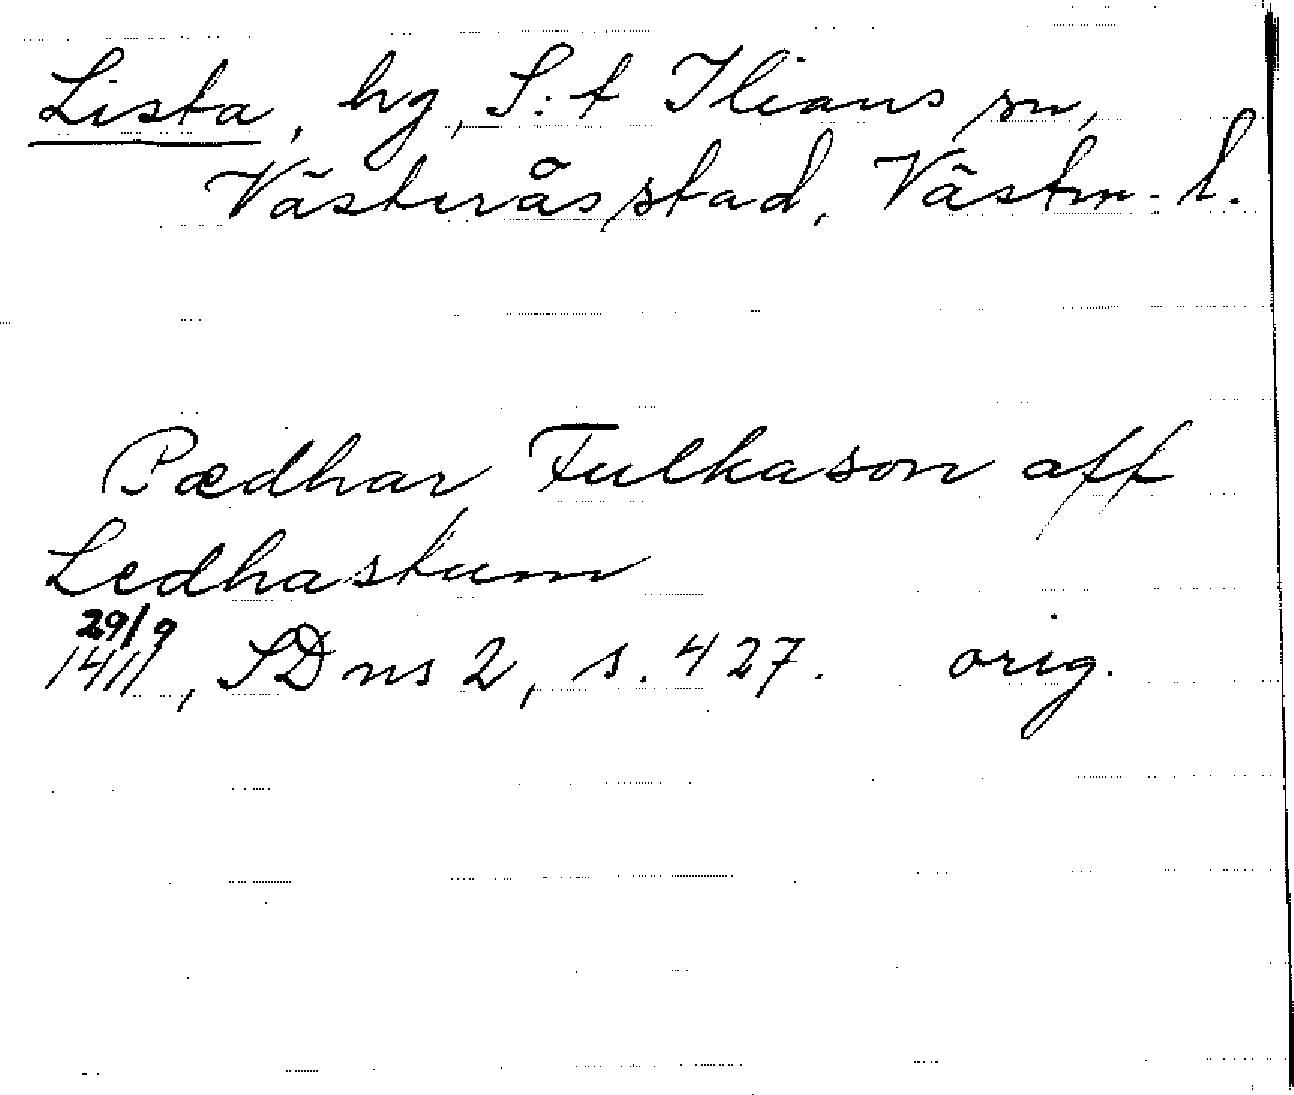 Lista, hg, S:t Ilians sn,
Västerås stad, Västm. l.
Pædhar Fulkason aff
Ledhastum
29/9
1411, SD ns 2, s. 427. orig.